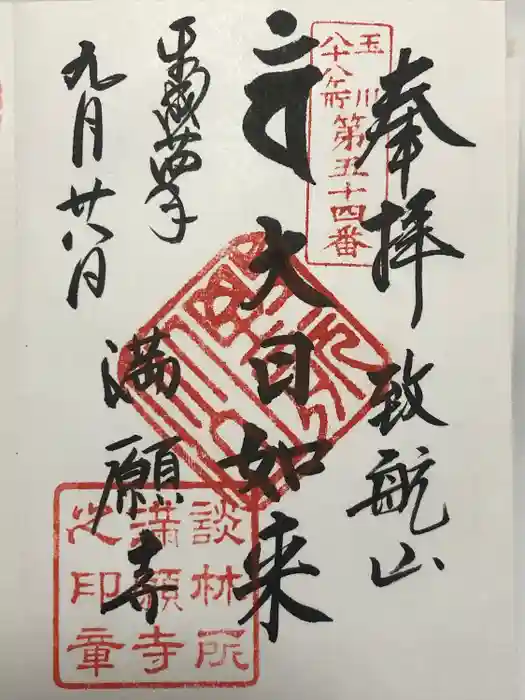 奉拝
致航山
玉川
八十八ケ所
第五十四番
大日如来
満願寺
平成卅年
九月廿八日
談林所
満願寺
之印章